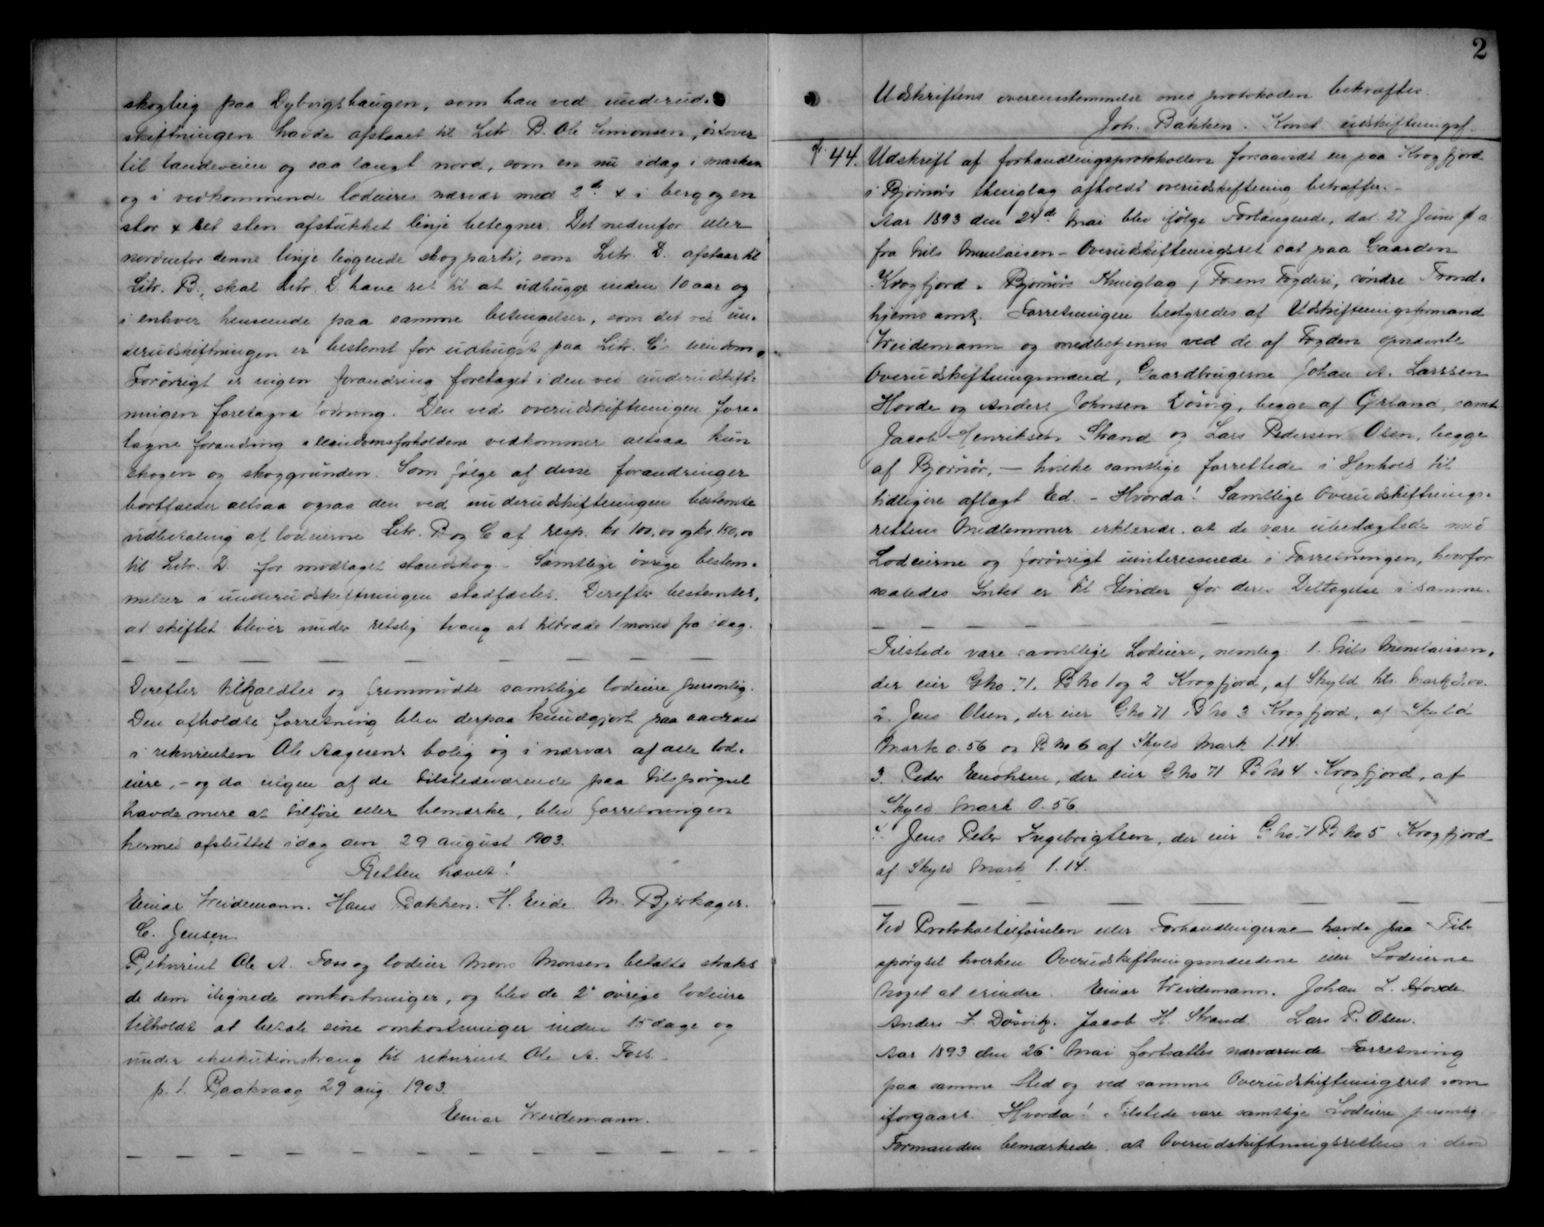 skogteig paa Dybvigshaugen, som han ved underud-
skiftningen havde afstaaet til Litr. B. Ole Simonsen, östover
til landeveien og saa langt nord, som en nu idag i marken
og i vedkommende lodeieres nærvær med 2de x i berg og en
stor x set sten afstukket linje betegner. Det nedenfor eller
nordenfor denne linje liggende skogparti, som Litr. D. afstaar til
Litr. B., skal Litr. D. have ret til at udhugge inden 10 aar og
i enhver henseende paa samme betingelser, som det ved un-
derudskiftningen er bestemt for udhugst paa Litr. C's eiendom.
Forövrigt er ingen forandring foretaget i den ved underudskift-
ningen foretagne lodning. Den ved overudskiftningen fore-
tagne forandring i eiendomsforholdene vedkommer altsaa kun
skogen og skoggrunden. Som fölge af disse forandringer
bortfalder altsaa ogsaa den ved underudskiftningen bestemte
udbetaling af lodeierne Litr. B og C af resp. kr. 100,00 og kr. 150,00
til Litr. D. for modtaget standskog. Samtlige övrige bestem-
melser i underudskiftningen stadfæstes. Derefter bestemtes,
at skiftet bliver under retslig tvang at tiltræde 1 maaned fra idag.
Derefter tilkaldtes og fremmödte samtlige lodeiere personlig.
Den afholdte forretning blev derpaa kundgjort paa aastedet
i rekvirenten Ole Aagesens bolig og i nærvær af alle lod-
eiere, - og da ingen af de tilstedeværende paa tilspörgsel
havde mere at tilföie eller bemærke, blev forretningen
hermed afsluttet idag den 29 august 1903.
Retten hævet!
Einar Weidemann. Hans Bakken. H. Eide. M. Bjerkager.
C. Jensen
Rekvirent Ole A. Foss og lodeier Mons Monsen betalte straks
de dem ilignede omkostninger, og blev de 2de övrige lodeiere
tilholdt at betale sine omkostninger inden 15 dage og
under exekutionstvang til rekvirent Ole A. Foss.
p. t. Raakvaag 29 aug. 1903.
Einar Weidemann.
2
Udskriftens overensstemmelse med protokollen bekræftes.
Joh. Bakken. Konst. udskiftningsf.
44. Udskrift af forhandlingsprotokollen forsaavidt en paa Krogfjord
i Björnörs thinglag afholdt overudskiftning betræffer. -
Aar 1893 den 24de Mai blev ifölge Forlangende, dat. 27 Juni f. a
fra Nils Menelaisen - Overudskiftningsret sat paa Gaarden
Krogfjord i Björnörs Thinglag, Fosens Fogderi, söndre Trond-
hjems amt. Forretningen bestyredes af Udskiftningsformand
Weidemann og medbetjentes ved de af Fogden opnævnte
Overudskiftningsmænd, Gaardbrugerne Johan A. Larssen
Hovde og Anders Johnsen Dösvig, begge af Örland, samt
Jacob Henriksen Strand og Lars Pedersen Osen, begge
af Björnör, - hvilke samtlige forrettede i Henhold til
tidligere aflagt Ed. - Hvorda! Samtlige Overudskiftnings-
rettens Medlemmer erklærede, at de vare ubeslægtede med
Lodeierne og forövrigt uinteresserede i Forretningen, hvorfor
saaledes Intet er til Hinder for deres Deltagelse i samme.
Tilstede vare samtlige Lodeiere, nemlig: 1. Nils Menelaisen,
der eier G.No. 71, B.No 1 og 2 Krogfjord, af Skyld tils. Mark 2.00.
2. Jens Olsen, der eier G.No 71 B.No 3 Krogfjord, af Skyld
Mark 0.56 og B.No 6 af Skyld Mark 1.14.
3. Peder Enochsen, der eier G.No 71 B.No 4 Krogfjord, af
Skyld Mark 0.56
4. Jens Peter Ingebrigtsen, der eier G.No. 71 B.No 5 Krogfjord
af Skyld Mark 1.14.
Ved Protokoltilförselen eller Forhandlingerne havde paa Til-
spörgsel hverken Overudskiftningsmændene eller Lodeierne
Noget at erindre. Einar Weidemann. Johan L. Hovde.
Anders J. Dösvik. Jacob H. Strand. Lars P. Osen.
Aar 1893 den 26. Mai fortsattes nærværende Forretning
paa samme Sted og ved samme Overudskiftningsret som
iforgaars. Hvorda! Tilstede vare samtlige Lodeiere personlig
Formanden bemærkede, at Overudskiftningsretten i den